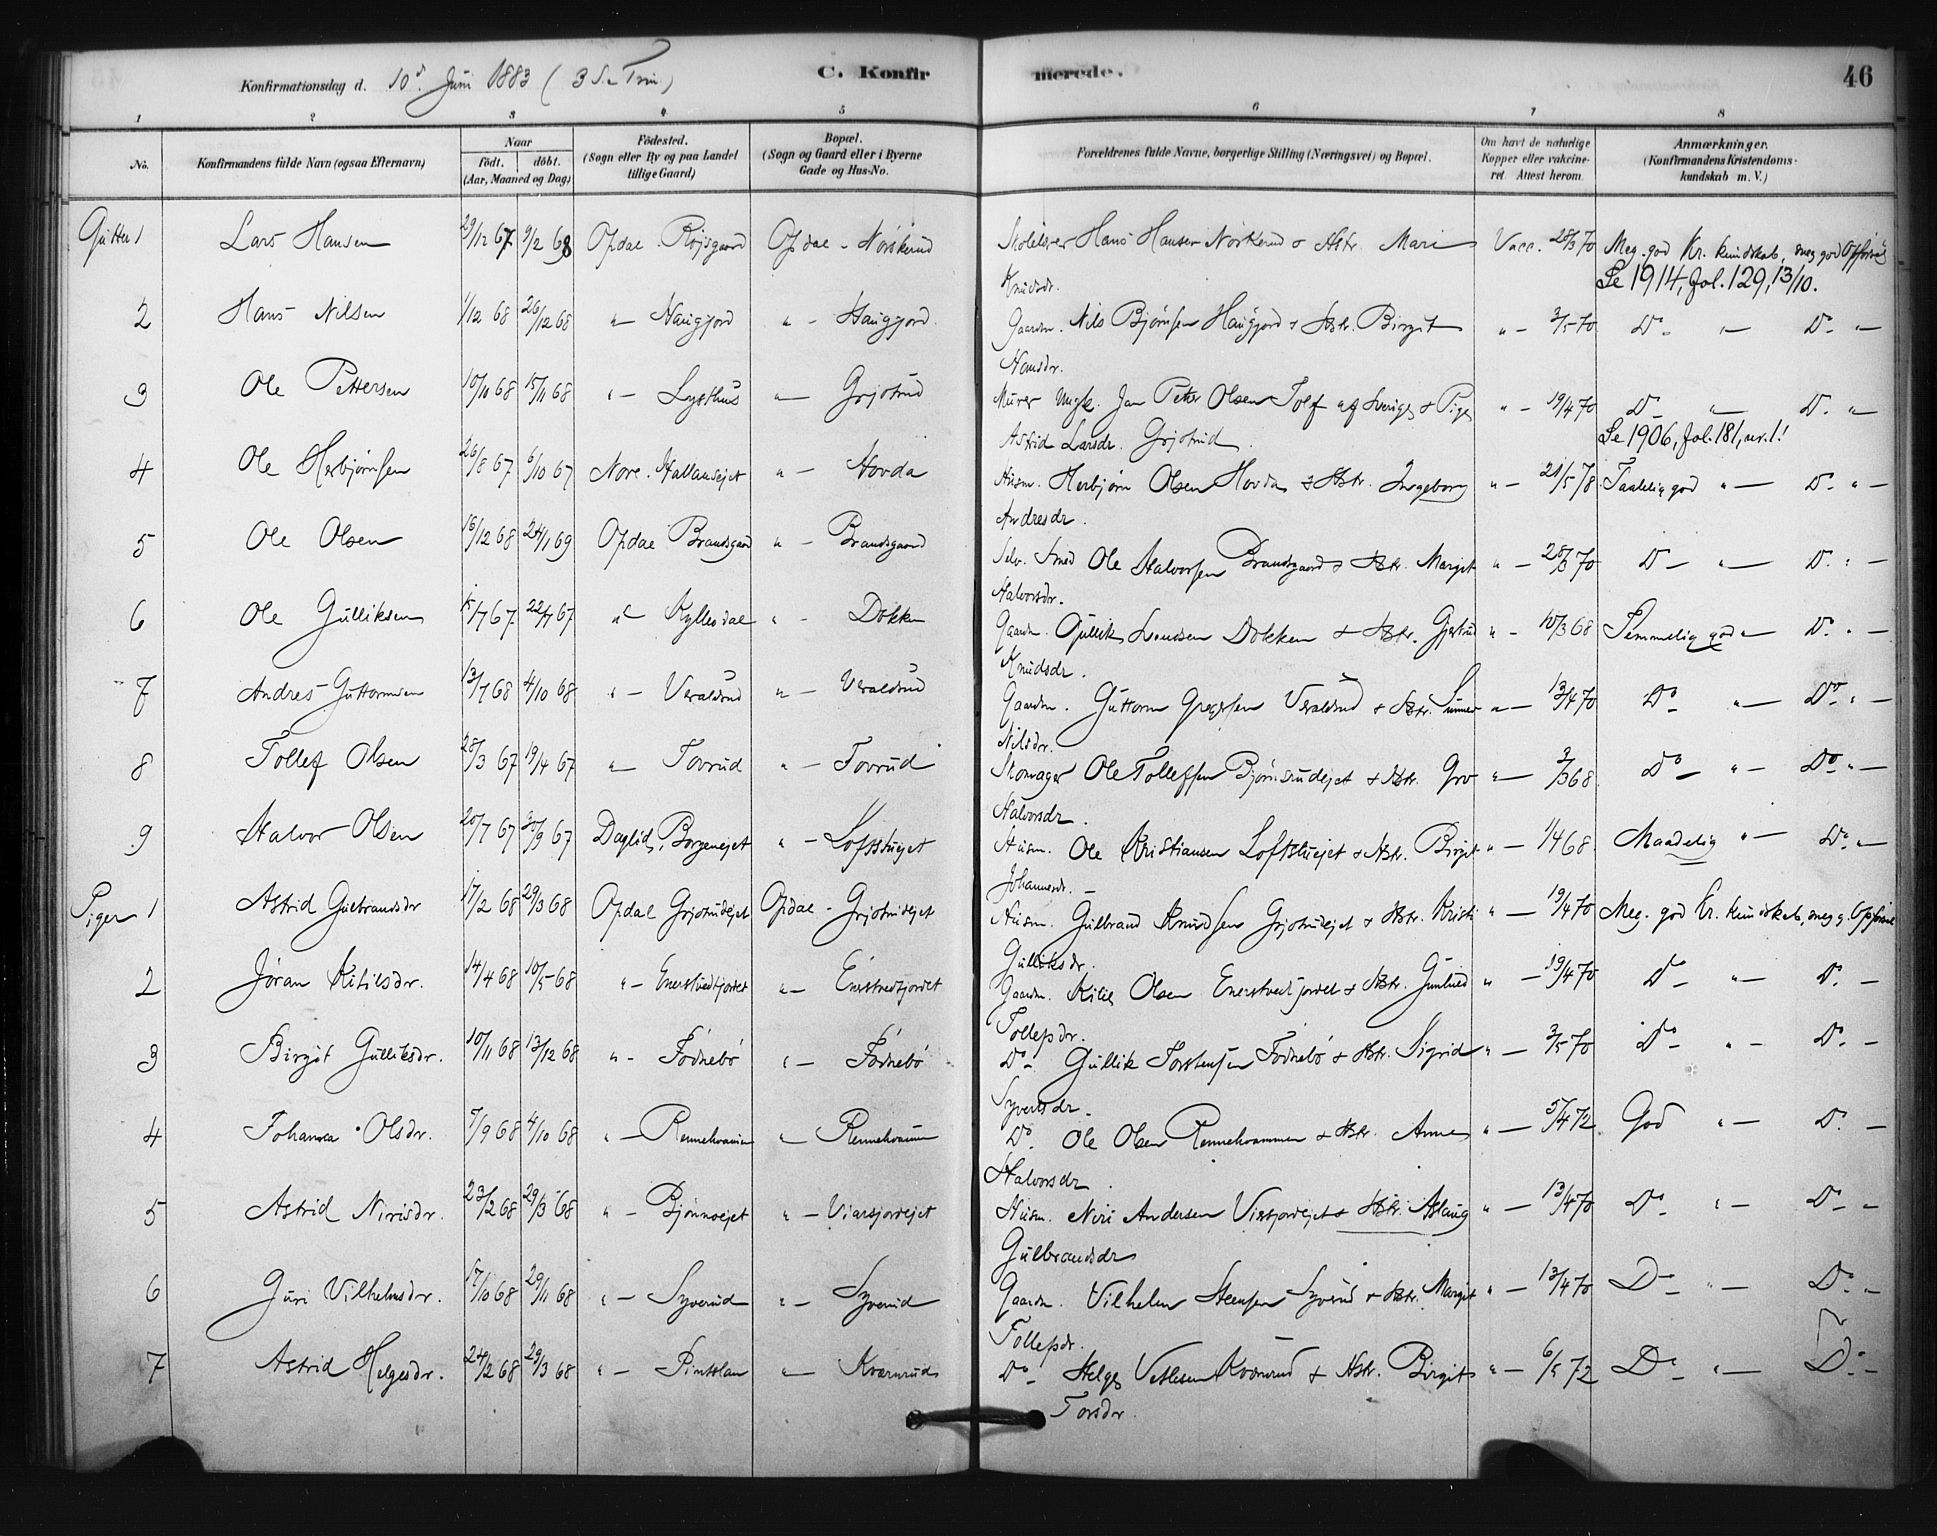 46
Konfirmationsdag d. 10d Juni 1883 (3 S. e Trin)
C. Konfirmerede.
1 2 3 4 5 6 7 8
No. Konfirmandens fulde Navn (ogsaa Efternavn) Naar født. døbt. (Aar, Maaned og Dag) Fødested. (Sogn eller By og paa Landet tillige Gaard) Bopæl. (Sogn og Gaard eller i Byerne Gade og Hus-No. Forældrenes fulde Navne, borgerlige Stilling (Næringsvei) og Bopæl. Om havt de naturlige Kopper eller vakcineret. Attest herom. Anmærkninger. (Konfirmandens Kristendomskundskab m. V.)
Gutter 1 Lars Hansen 29/12 67 9/2 68 Opdal Røjsgaard Opdal - Nørsterud Hans Hansen Nørsterud & Hstr. Mari Knudsdr. Vacc. 28/3 70 Meg. god Kr. kundskab, meg god Opførsel
Se 1914, fol. 129, 13/10.
2 Hans Nilsen 1/12 68 26/12 68 " - Haugjord " - Haugjord Gaardm. Nils Bjørnsen Haugjord & Hstr. Birgit " - 3/5 70 Do " - Do " -
3 Ole Pettersen 10/11 68 15/11 68 " - Lysthus " - Grjotrud Murer Ungk. Jan Peter Olsen Tolf af Sverige & Pige Astrid Larsdr. Grjotrud " - 19/4 70 Do " - Do " -
Se 1906, fol. 181, nr. 1!
4 Ole Herbjørnsen 26/8 67 6/10 67 Nore. Hallansejet " - Hovda Husm. Herbjørn Olsen Hovda & Hstr. Ingeborg Andresdr. " - 21/5 78 Taalelig god " - Do " -
5 Ole Olsen 16/12 68 24/1 69 Opdal Brandsgaard " - Brandsgaard Selv. Smed Ole Halvorsen Brandsgaard & Hstr. Margit Halvorsdr. " - 28/3 70 Do " - Do " -
6 Ole Gulliksen 15/7 67 22/7 67 " - Kyllesdal " - Dokken Gaardm. Gullik Svendsen Dokken & Hstr. Gjertrud Knudsdr. " - 10/3 68 Temmelig god " - Do " -
7 Andres Guttormsen 13/7 68 4/10 68 " - Veraldrud " - Veraldrud Gaardm. Guttorm Gregersen Veraldrud & Hstr. Nilsdr. " - 13/4 70 Do " - Do " -
8 Tollef Olsen 28/3 67 19/4 67 " - Tovrud " - Tovrud Skomager Ole Tollefsen Bjørnsrudejet & Hstr. Gro Halvorsdr. " - 2/3 68 Do " - Do " -
9 Halvor Olsen 20/7 67 30/9 67 Daglid, Borgenejet " - Loftstuejet Husm. Ole Kristiansen Loftstuejet & Hstr. Birgit Johannesdr. " - 1/4 68 Maadelig " - Do " -
Piger 1 Astrid Gulbrandsdr 17/2 68 29/3 68 Opdal Grjotrudejet Opdal - Grjotrudejet Husm. Gulbrand Knudsen Grjotrudejet & Hstr. Kristi Gulliksdr. " - 19/4 70 Meg. god Kr. kundskab, meg g. Opførsel
2 Jøran Kitilsdr. 14/4 68 10/5 68 " - Enerstvedtjordet " - Enerstvedtjordet Gaardm. Kitil Olsen Enerstvedtjordet & Hstr. Gunhild Tollefsdr. " - 19/4 70 Do " - Do -
3 Birgit Gulliksdr. 10/11 68 13/12 68 " - Fødnebø " - Fødnebø Do Gullik Torstensen Fødnebø & Hstr. Sigrid Syvertsdr. " - 3/5 70 Do " - Do -
4 Johanna Olsdr. 7/9 68 4/10 68 " - Rennehvammen " - Rennehvammen Do Ole Olsen Rennehvammen & Hstr. Anne Halvorsdr. " - 5/4 72 God " - Do -
5 Astrid Nirisdr. 23/2 68 29/3 68 " - Bjønnoejet " - Viarsjordejet Husm. Niri Andersen & Hstr. Aslaug Gulbrandsdr " - 13/4 70 Do " - Do " -
6 Guri Vilhelmsdr. 17/10 68 29/11 68 " - Syverud " - Syverud Gaardm. Vilhelm Steensen Syverud & Hstr. Margit Tollefsdr. " - 13/4 70 Do " - Do " -
7 Astrid Helgesdr. 24/2 68 29/3 68 " - " - Kværnrud Do Helge Vetlesen Kværnrud & Hstr. Birgit Torsdr. " - 6/5 72 Do " - Do -